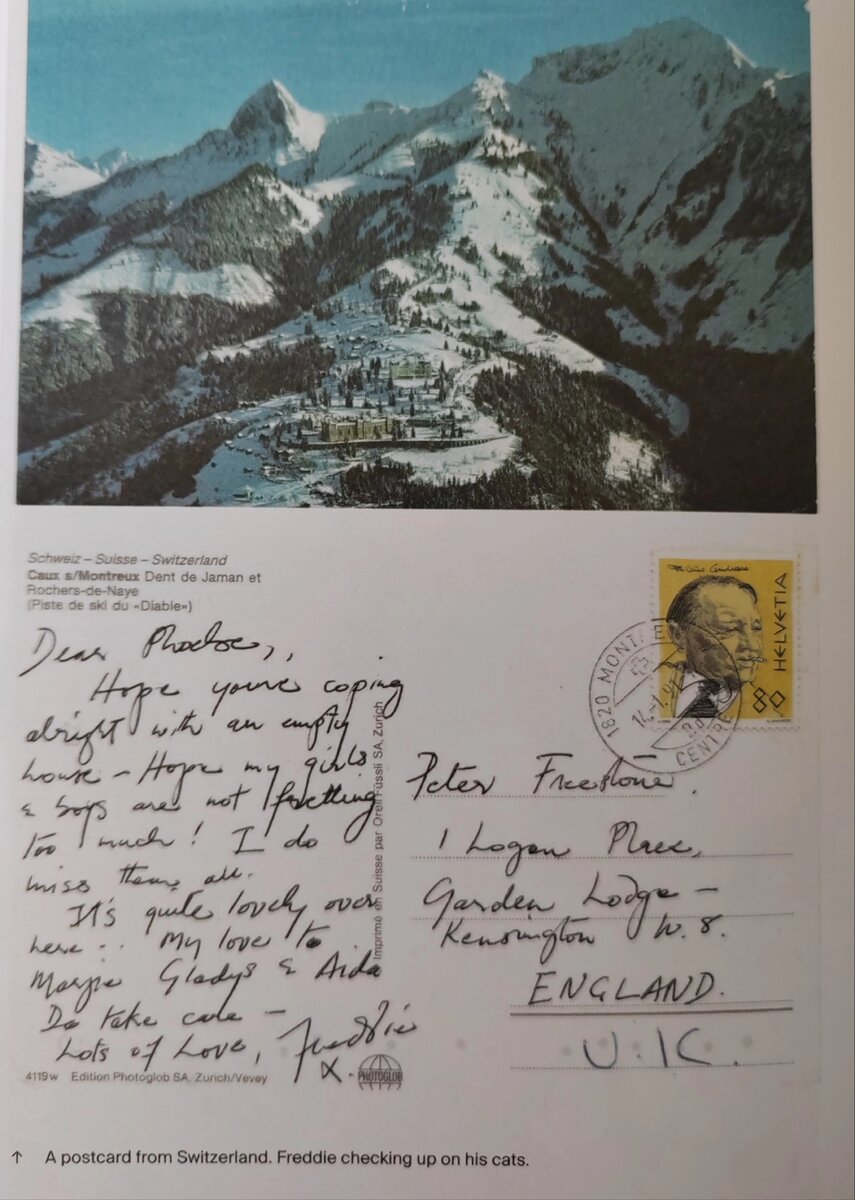 Schweiz – Suisse – Switzerland
Caux s/Montreux Dent de Jaman et
Rochers-de-Naye
(Piste de ski du «Diable»)
HELVETIA
80
1820 MONTREUX
CENTRE
Dear Phoebe,,
Hope you're coping
alright with an empty
house – Hope my girls
& boys are not fretting
too much! I do
miss them all.
It's quite lovely over
here.. My love to
Margie Gladys & Aida
Do take care –
Lots of Love, Freddie
X.
Imprimé en Suisse par Orell Füssli SA, Zurich
Peter Freestone.
1 Logan Place,
Garden Lodge –
Kensington W.8.
ENGLAND.
U.K.
4119w Edition Photoglob SA, Zurich/Vevey
PHOTOGLOB
↑ A postcard from Switzerland. Freddie checking up on his cats.